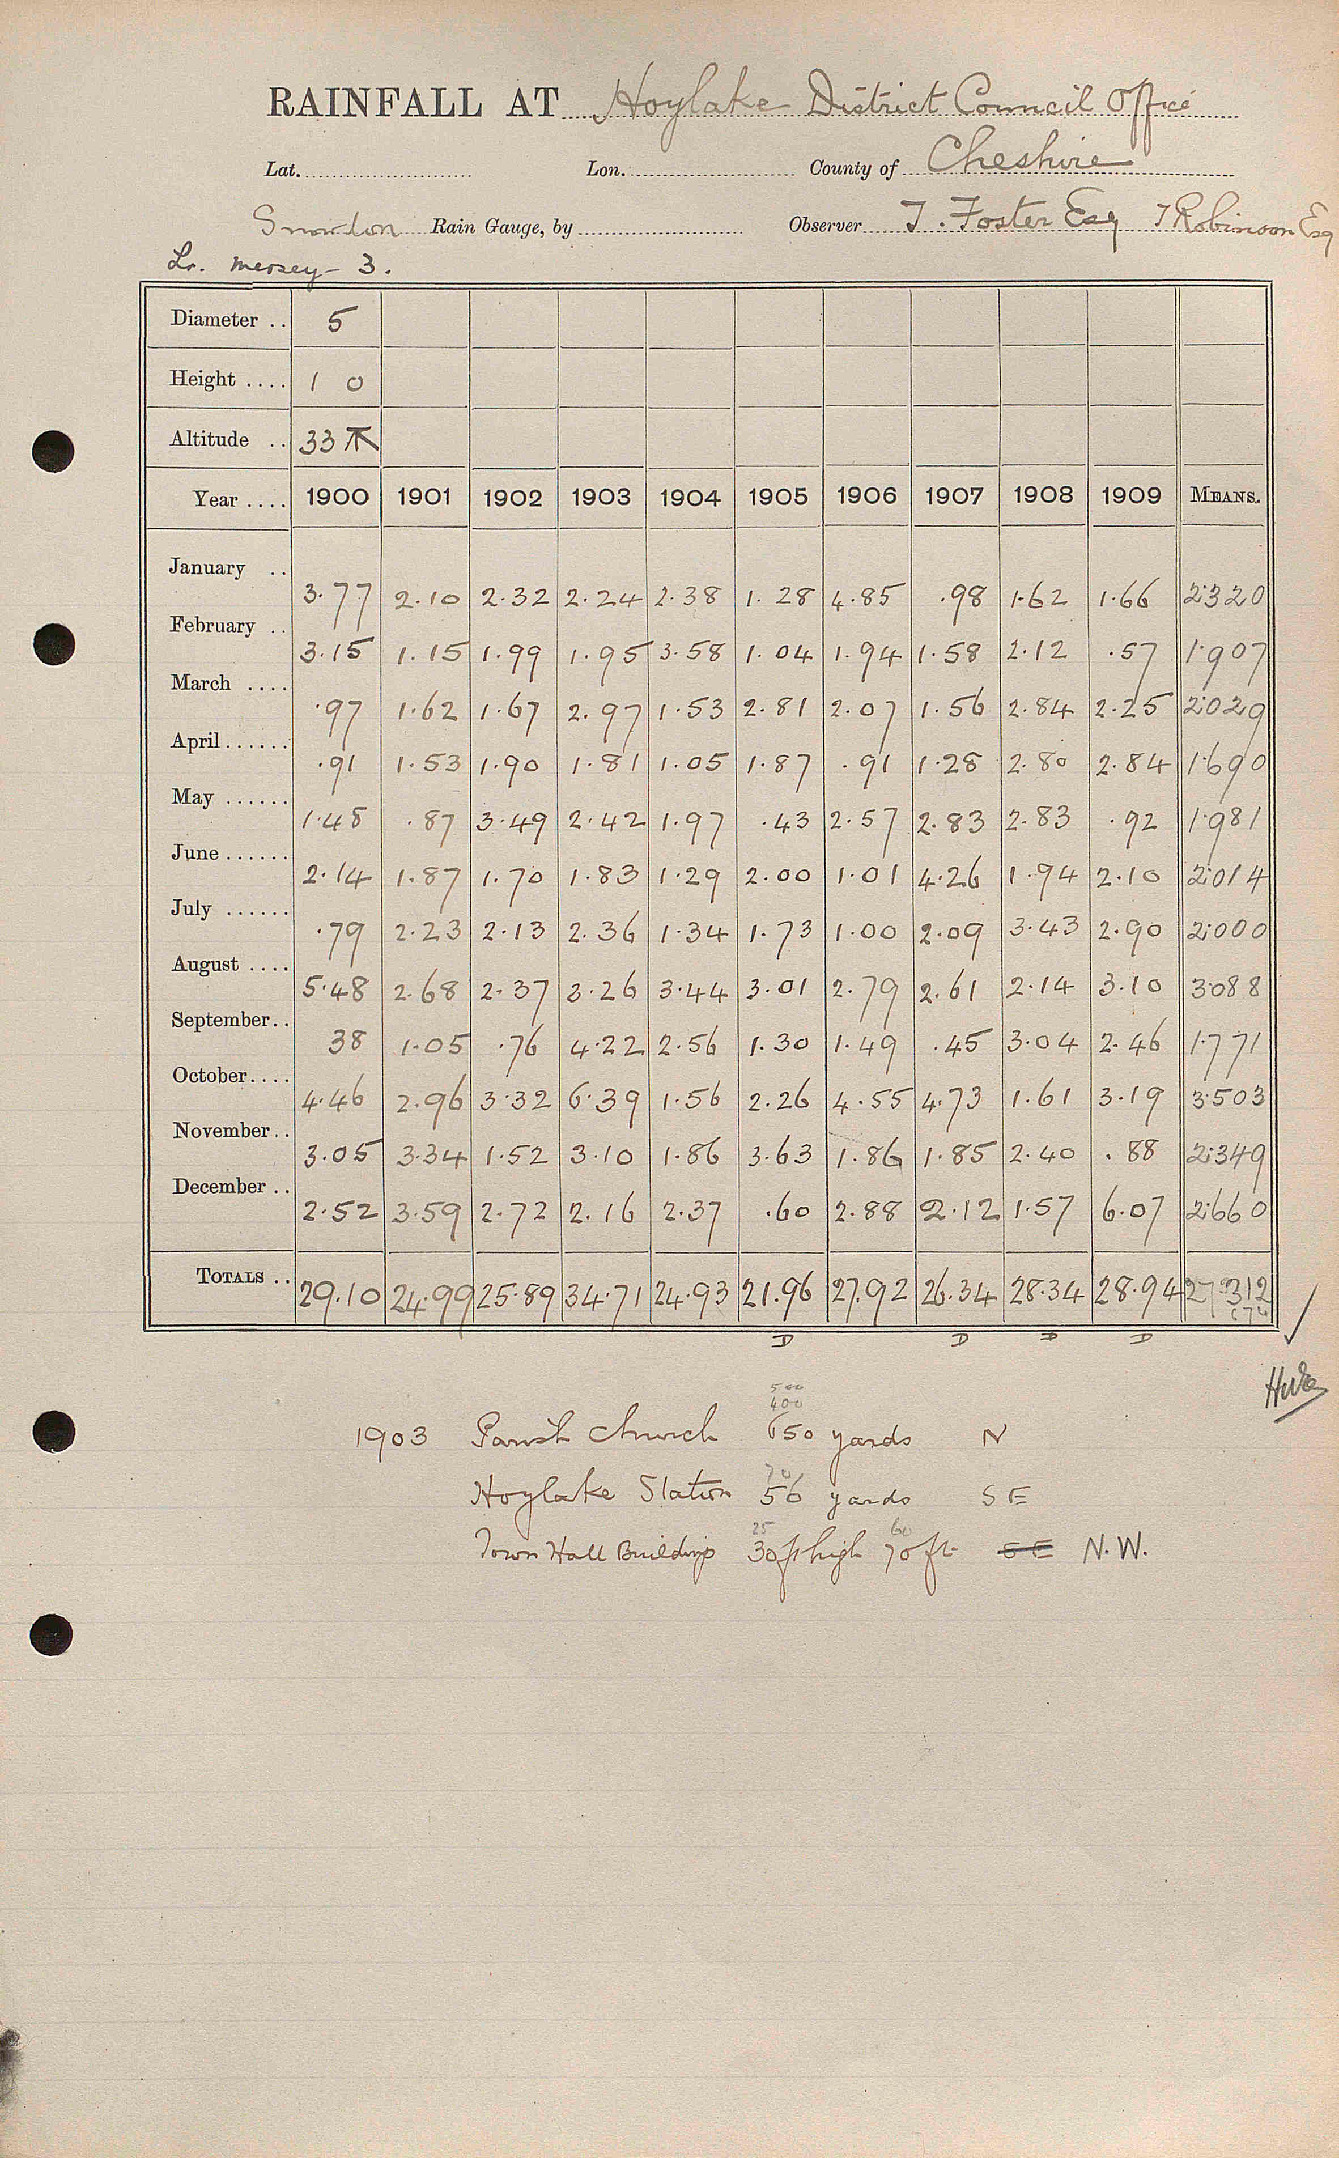 RAINFALL AT Hoylake District Council Office
Lat. Lon. County of Cheshire
Snowdon Rain Gauge, by Observer T. Foster Esq T Robinson Esq
Lr. Mersey - 3.
Diameter .. 5
Height .... 1 0
Altitude .. 33
Year .... 1900 1901 1902 1903 1904 1905 1906 1907 1908 1909 MEANS.
January .. 3.77 2.10 2.32 2.24 2.38 1.28 4.85 .98 1.62 1.66 2.320
February .. 3.15 1.15 1.99 1.95 3.58 1.04 1.94 1.58 2.12 .57 1.907
March .... .97 1.62 1.67 2.97 1.53 2.81 2.07 1.56 2.84 2.25 2.029
April ...... .91 1.53 1.90 1.81 1.05 1.87 .91 1.28 2.80 2.84 1.690
May ...... 1.48 .87 3.49 2.42 1.97 .43 2.57 2.83 2.83 .92 1.981
June ...... 2.14 1.87 1.70 1.83 1.29 2.00 1.01 4.26 1.94 2.10 2.014
July ...... .79 2.23 2.13 2.36 1.34 1.73 1.00 2.09 3.43 2.90 2.000
August .... 5.48 2.68 2.37 3.26 3.44 3.01 2.79 2.61 2.14 3.10 3.088
September .. 38 1.05 .76 4.22 2.56 1.30 1.49 .45 3.04 2.46 1.771
October .... 4.46 2.96 3.32 6.39 1.56 2.26 4.55 4.73 1.61 3.19 3.503
November .. 3.05 3.34 1.52 3.10 1.86 3.63 1.86 1.85 2.40 .88 2.349
December .. 2.52 3.59 2.72 2.16 2.37 .60 2.88 2.12 1.57 6.07 2.660
TOTALS .. 29.10 24.99 25.89 34.71 24.93 21.96 27.92 26.34 28.34 28.94 27.312
D D D D
500
400
1903 Parish Church 650 yards N
70
Hoylake Station 56 yards SE
25 60
Town Hall Buildings 30ft high 70ft SE N.W.